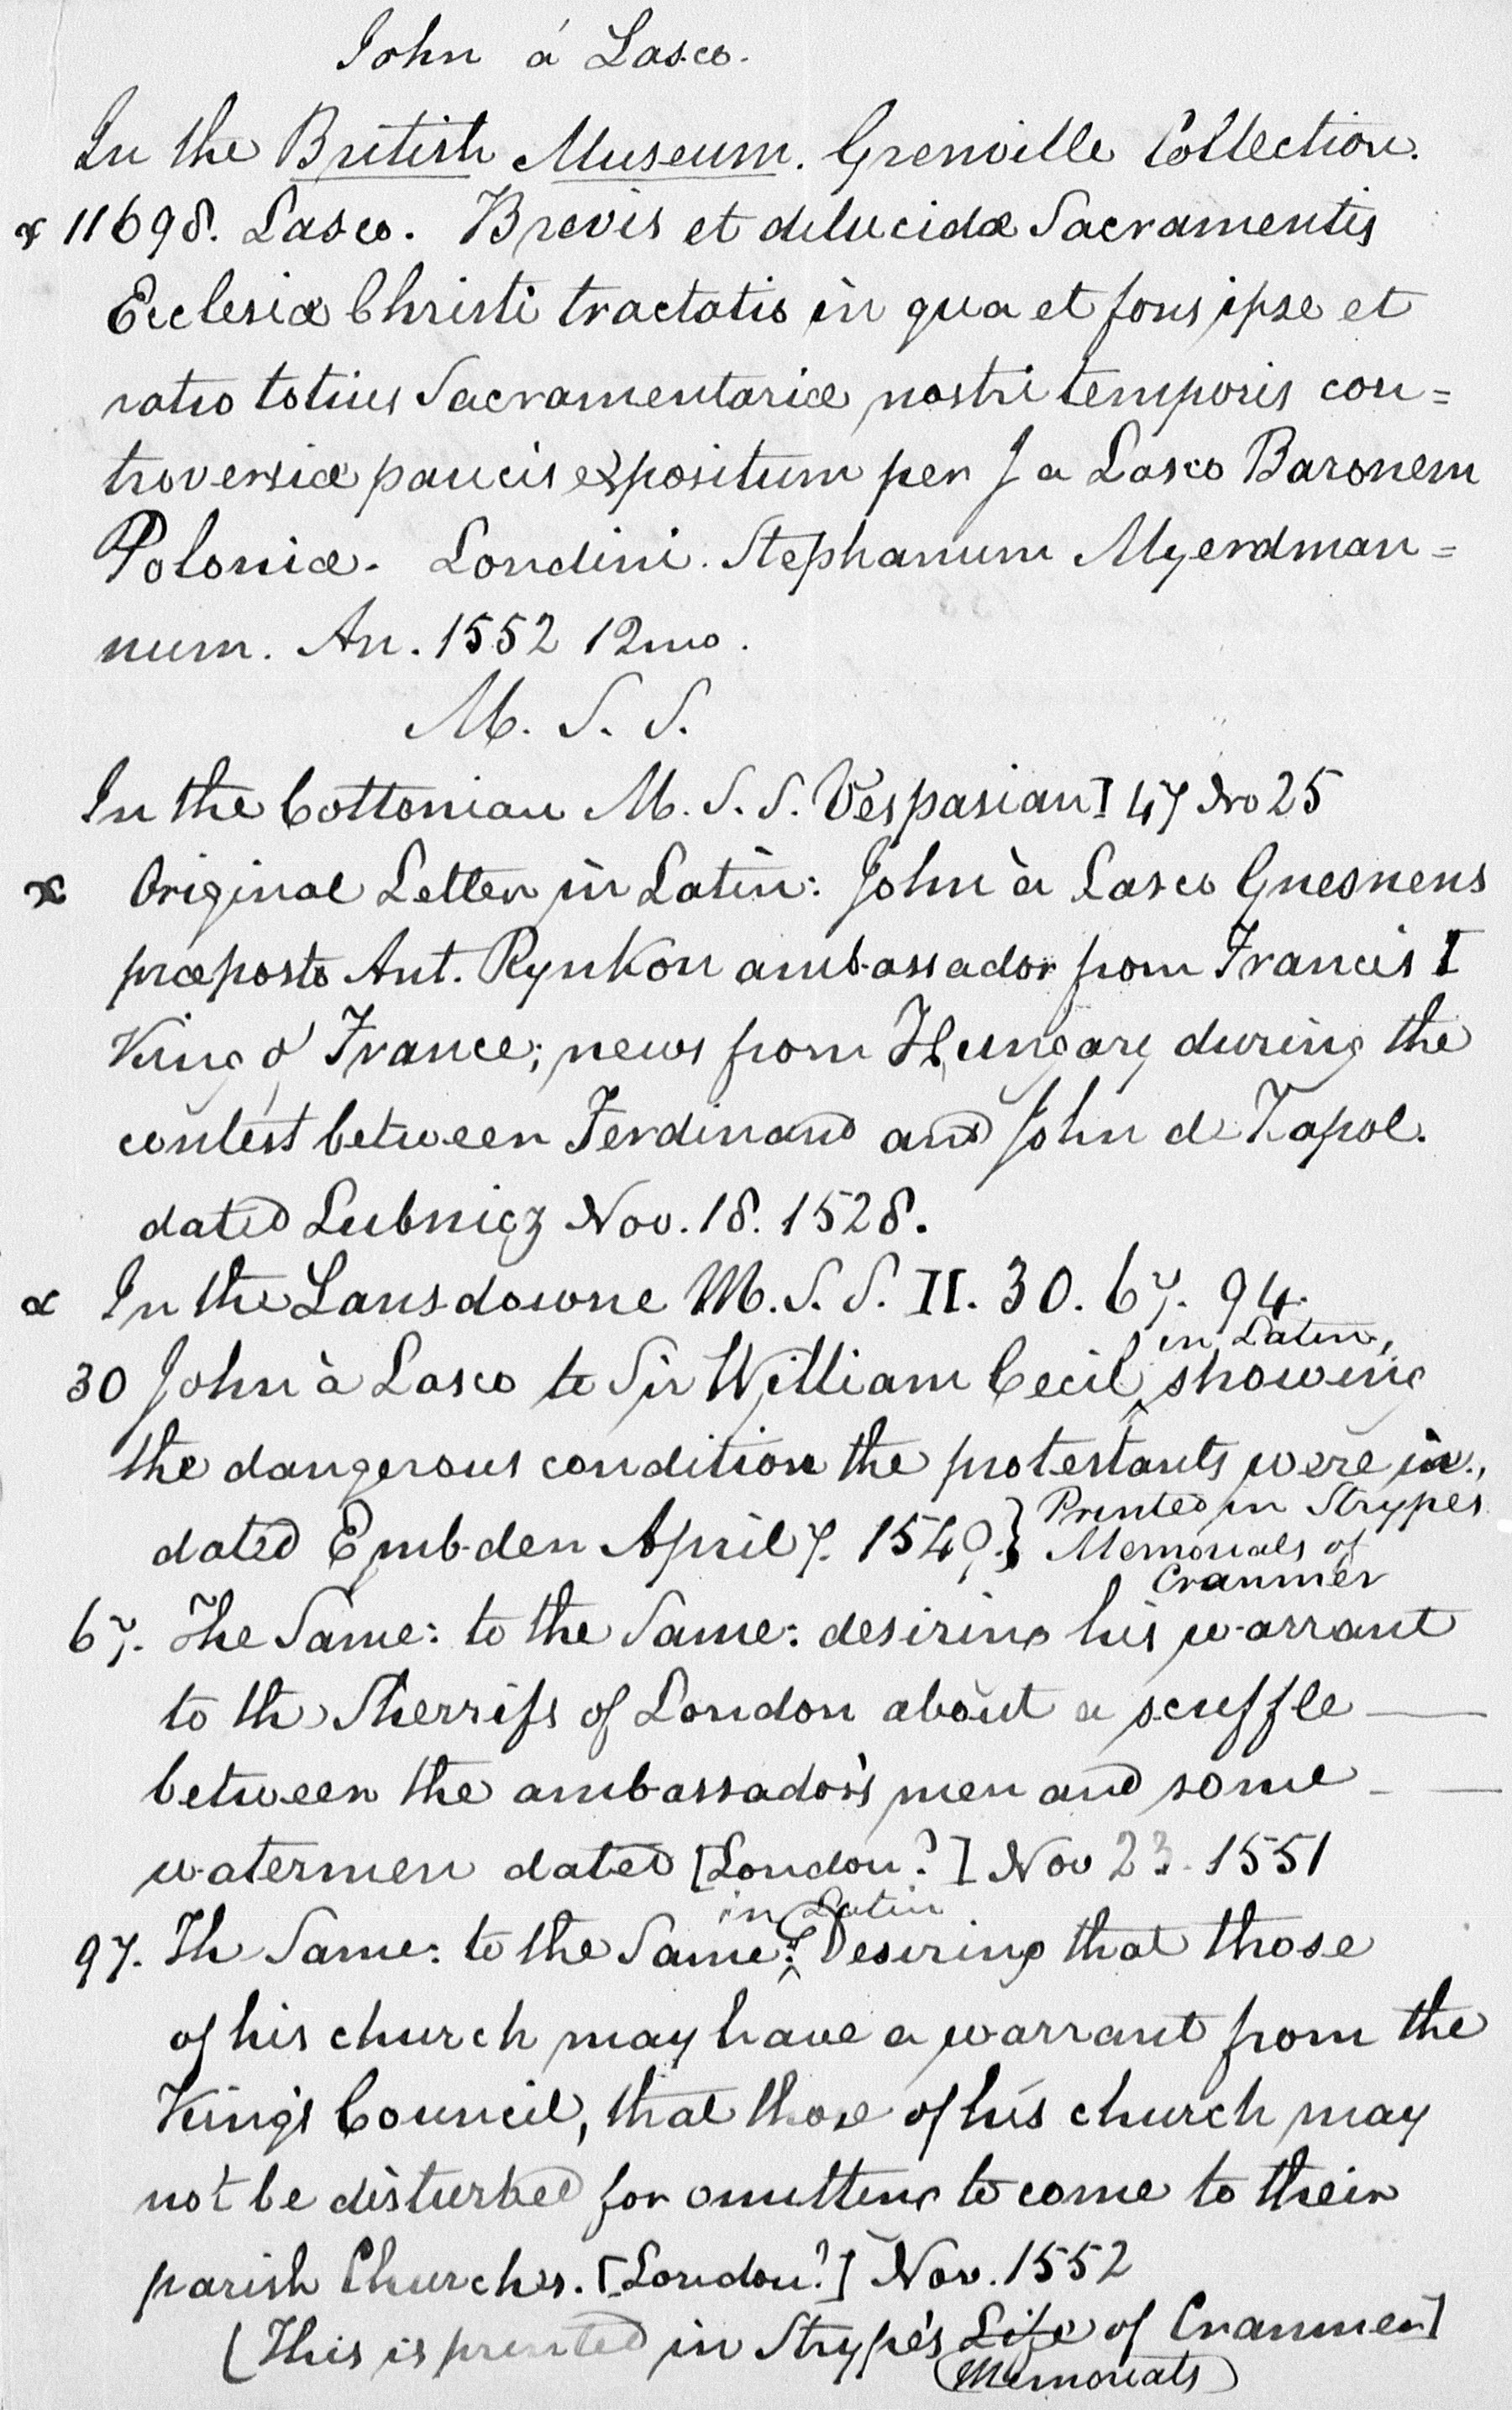 John á Lasco.
In the British Museum. Grenville Collection.
x 11698. Lasco. Brevis et delucidæ Sacramentis
Ecclesiæ Christi tractatio in qua et fons ipse et
ratio totius Sacramentariæ nostri temporis con=
troversiæ paucis expositum per J a Lasco Baronem
Poloniæ. Londini. Stephanum Myerdman=
num. An. 1552 12mo.
M. S. S.
In the Cottonian M. S. S. Vespasian I 47 No 25
x Original Letter in Latin: John à Lasco Gnesnens
præposto Ant. Rynkon ambassador from Francis I
King of France; news from Hungary during the
contest between Ferdinand and John de Zapol.
dated Lubnicz Nov. 18. 1528.
x In the Lansdowne M. S. S. II. 30. 67. 94.
in Latin,
30 John à Lasco to Sir William Cecil, showing
the dangerous condition the protestants were in.,
dated Embden April 7. 1549.} Printed in Strypes
Memorials of
Cranmer
67. The Same: to the Same: desiring his warrant
to the Sherrifs of London about a scuffle —
between the ambassador's men and some - —
watermen dated [London?] Nov 23. 1551
in Latin
97. The Same: to the Same: Desiring that those
of his church may have a warrant from the
King's Council, that those of his church may
not be disturbed for omitting to come to their
parish Churches. [London?] Nov. 1552
(This is printed in Strype's Life of Cranmer]
(Memorials)